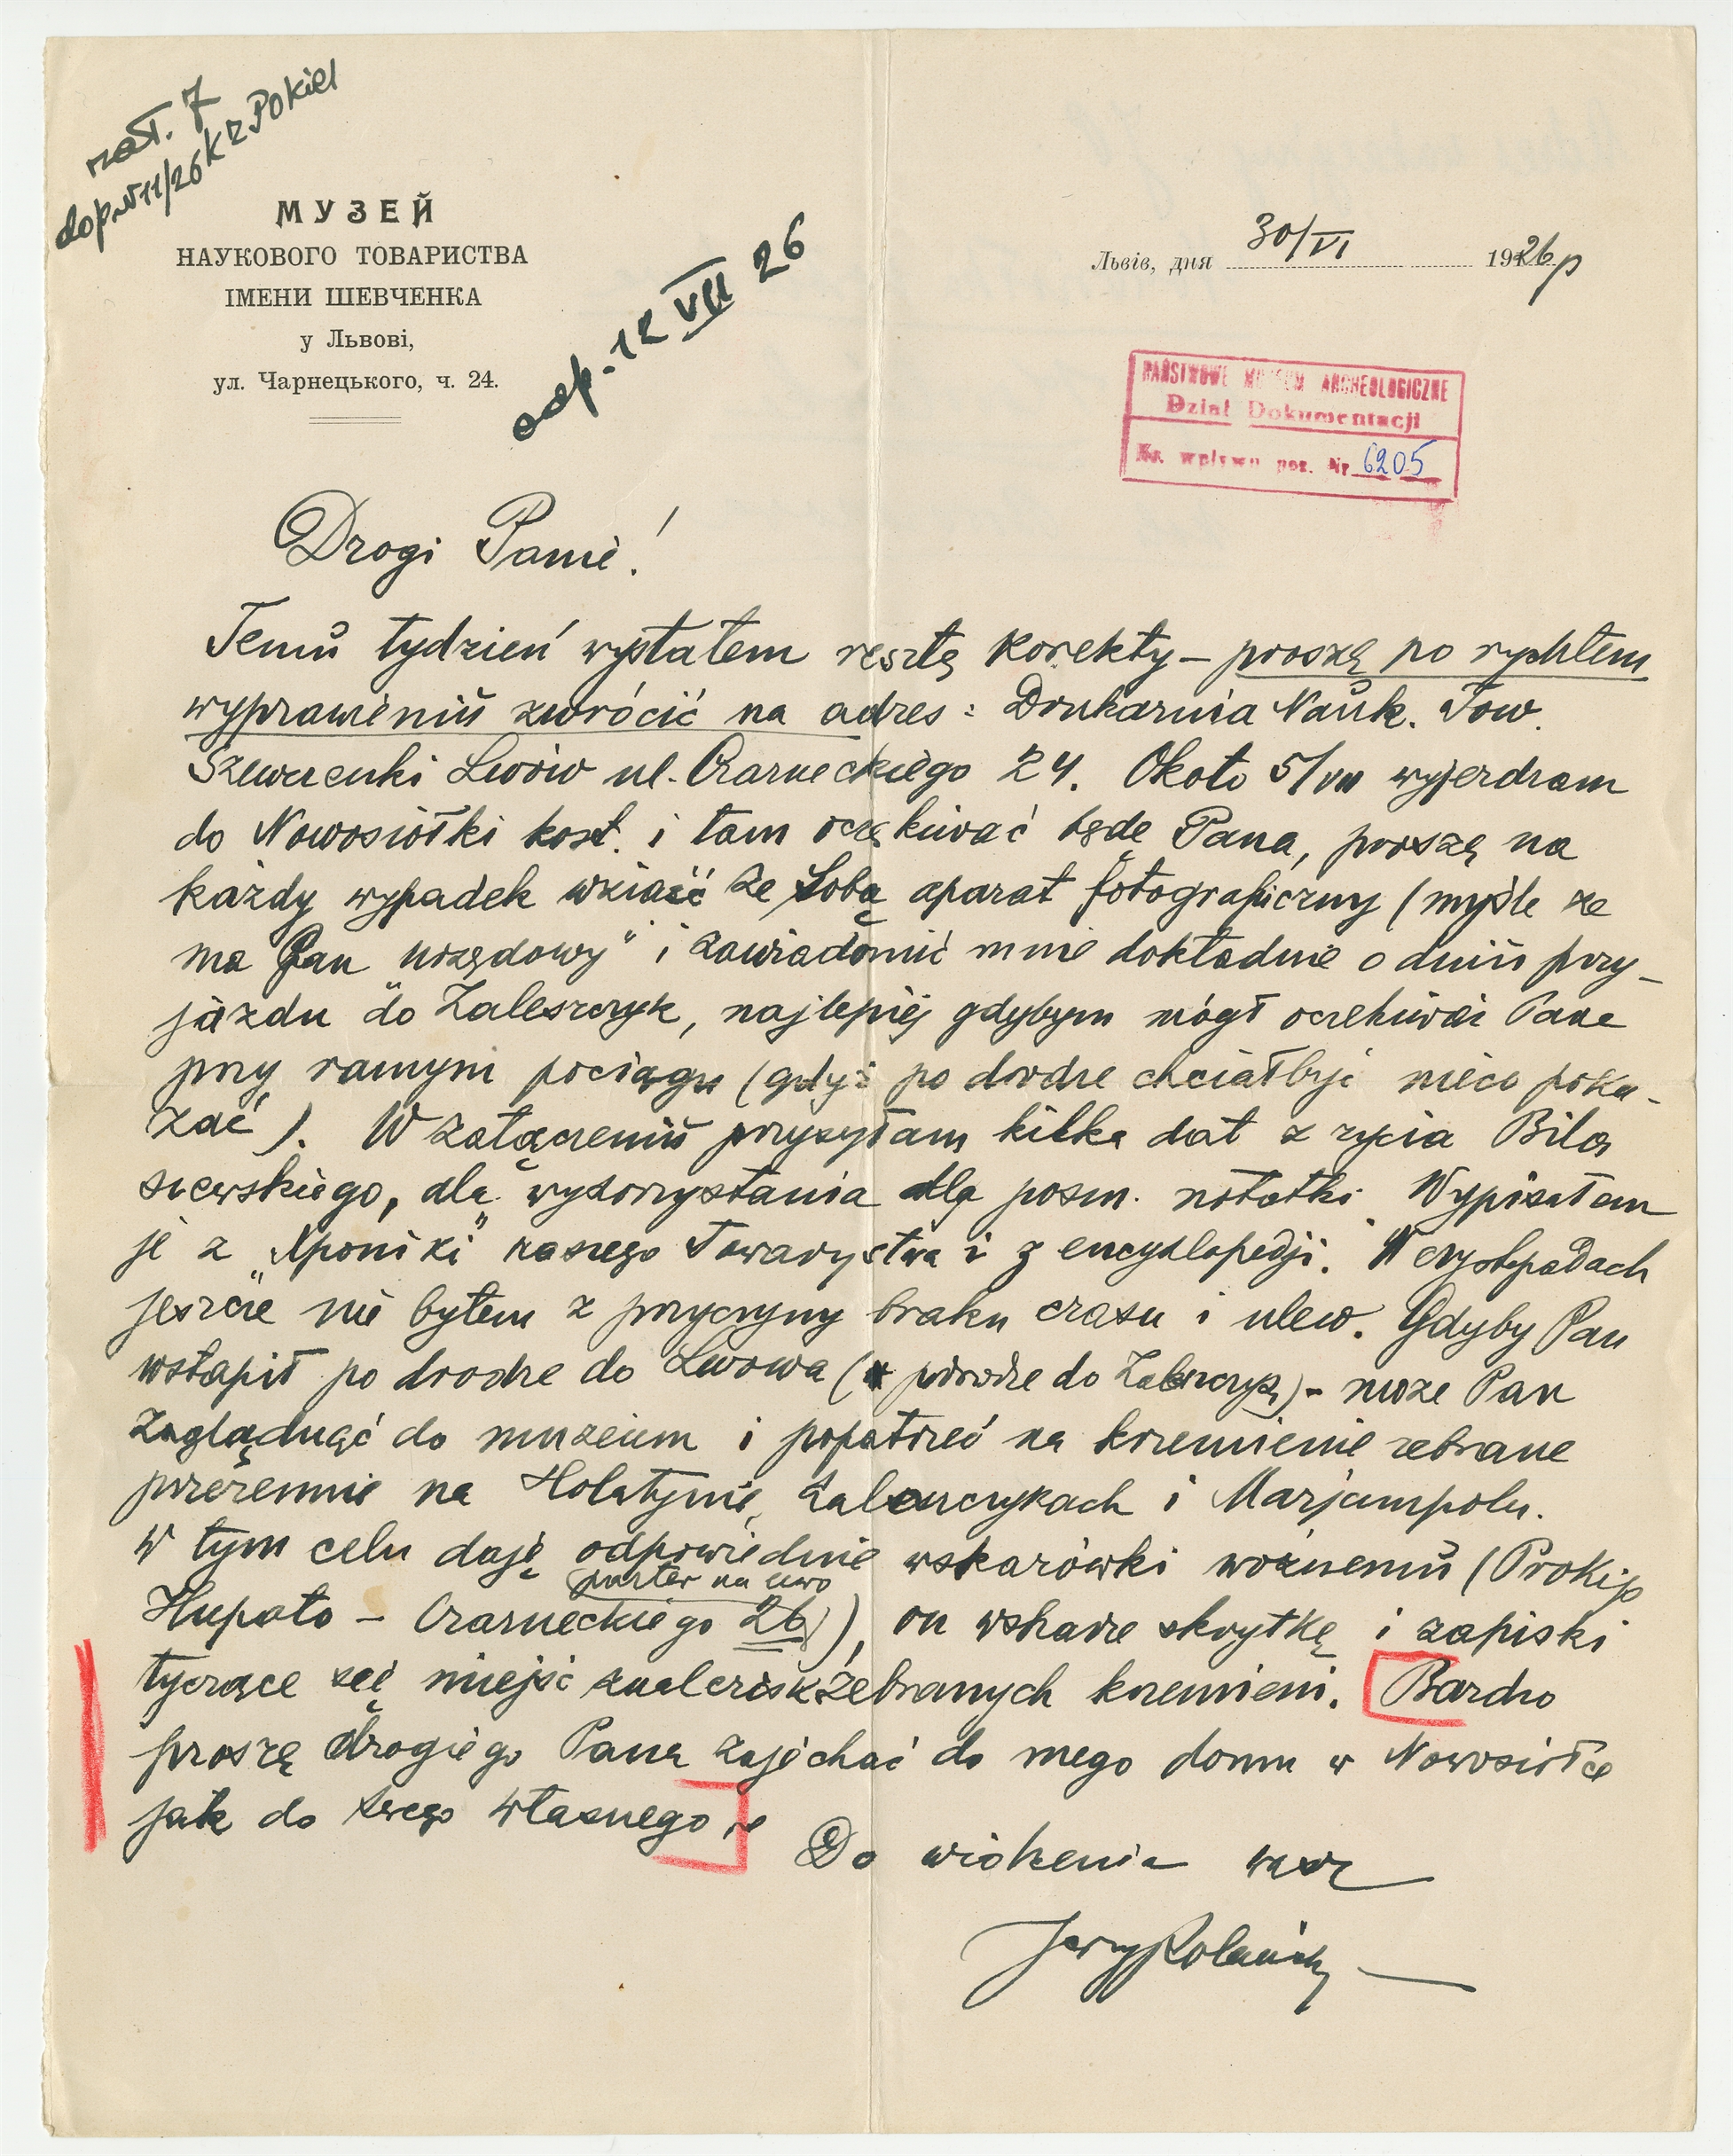 zał. 7
dop. N 11/26 K
МУЗЕЙ
НАУКОВОГО ТОВАРИСТВА
ІМЕНИ ШЕВЧЕНКА
у Львові,
ул. Чарнецького, ч. 24.
odp. 12 VII 26
Львів, дня 30/VI 1926 р
PAŃSTWOWE MUZEUM ARCHEOLOGICZNE
Dział Dokumentacji
Ks. wpływu poz. Nr 6205
Drogi Panie!
Temu tydzień wysłałem resztę korekty – proszę po rychłem
wyprawieniu zwrócić na adres: Drukarnia Nauk. Tow.
Szewczenki Lwów ul. Czarneckiego 24. Około 5/VII wyjezdzam
do Nowosiółki kost. i tam oczekiwać będe Pana, proszę na
każdy wypadek wziaść ze sobą aparat fotograficzny (myśle ze
ma Pan urzędowy" i zawiadomić mnie dokładnie o dniu przy-
jazdu do Zaleszczyk, najlepiej gdybym mógł oczekiwać Pana
przy rannym pociągu (gdyż po drodze chciałbyć nieco poka-
zać). W załączeniu przysyłam kilka dat z zycia Bilo
szewskiego, dla wykorzystania dla posm. notatki. Wypisałem
je z „Xponiki" naszego Towarzystwa i z encyklopedji. W Czystopadach
jeszcze nie byłem z przyczyny braku czasu i ulew. Gdyby Pan
wstąpił po drodze do Lwowa (po drodze do Zaleszczyk) – moze Pan
zaglądnąć do muzeum i popatrzeć na krzemienie zebrane
przezemnie na Holatynie, Zaleszczykach i Marjampolu.
W tym celu daję odpowiednie wskazówki woźnemu (Prokip
Hupało – Czarneckiego 26 parter na lewo), on wskaże skrytkę i zapiski
tyczące się miejść znalezisk zebranych krzemieni. Bardzo
proszę drogiego Pana zajechać do mego domu w Nowosiółce
jak do swego własnego.
Do widzenia wasz